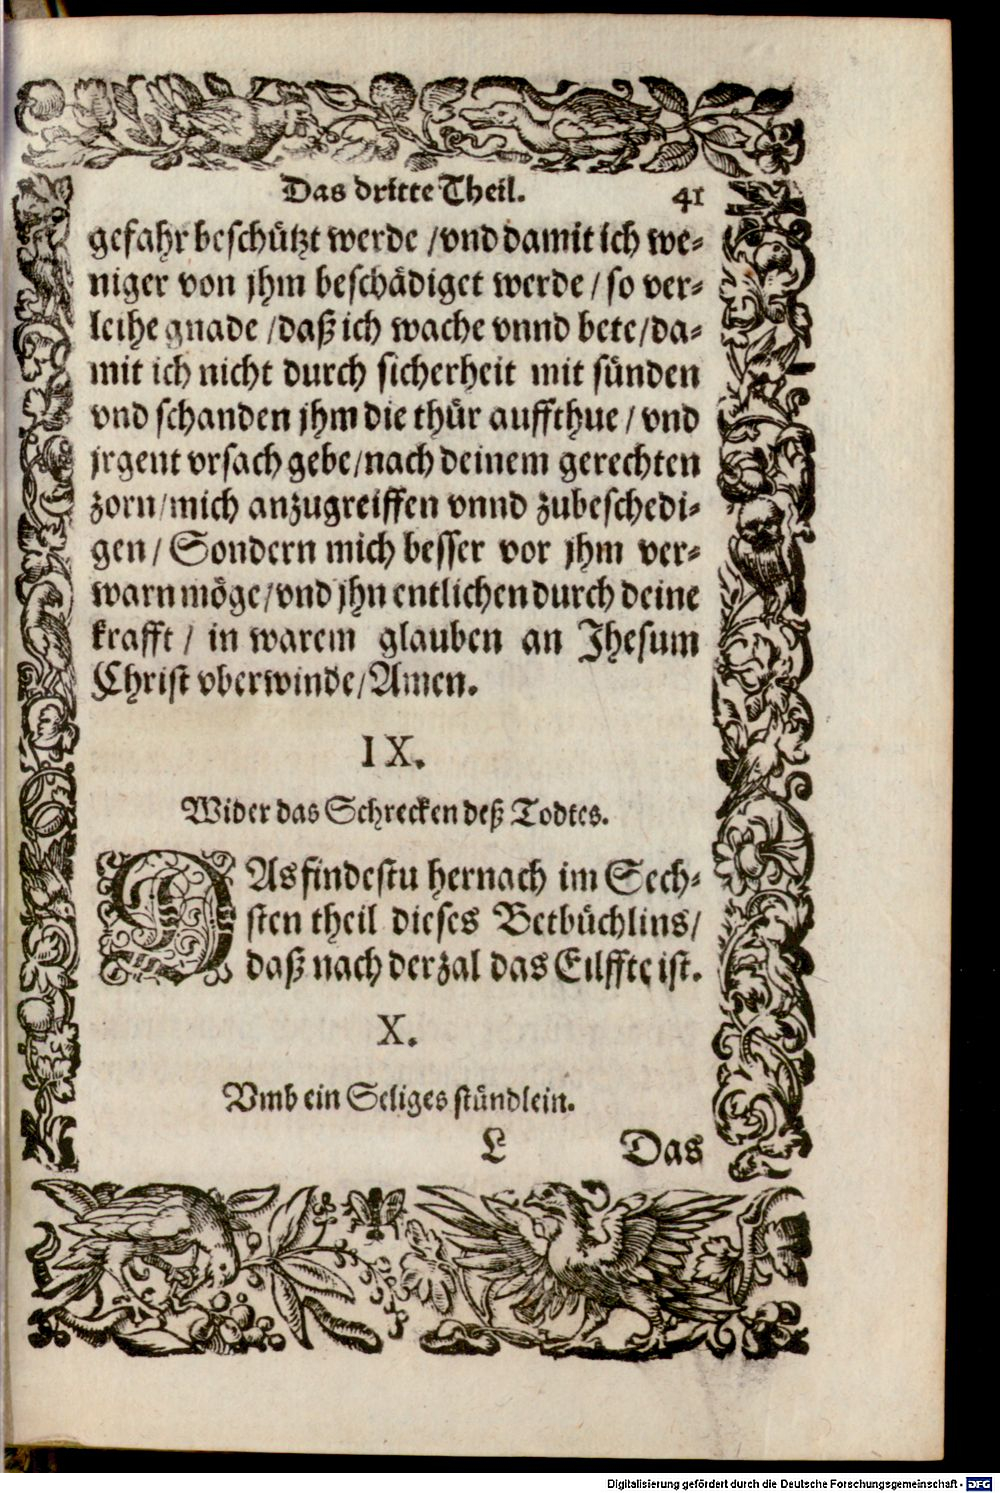 Das dritte Theil. 41
gefahr beschützt werde /vnd damit ich we-
niger von jhm beschädiget werde / so ver-
leihe gnade /daß ich wache vnnd bete/da-
mit ich nicht durch sicherheit mit sünden
vnd schanden jhm die thür auffthue / vnd
jrgent vrsach gebe/nach deinem gerechten
zorn/mich anzugreiffen vnnd zubeschedi-
gen/ Sondern mich besser vor jhm ver-
warn möge/vnd jhn entlichen durch deine
krafft / in warem glauben an Jhesum
Christ vberwinde/Amen.
IX.
Wider das Schrecken deß Todtes.
DAs findestu hernach im Sech-
sten theil dieses Betbüchlins/
daß nach der zal das Eilffte ist.
X.
Vmb ein Seliges stündlein.
L Das
Digitalisierung gefördert durch die Deutsche Forschungsgemeinschaft - DFG